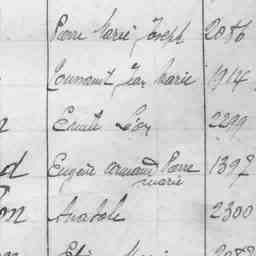 Pierre Marie Joseph 2086
Jean Marie 1914
n Emile Léon 2299
d Eugène Armand Pierre 1397
marie
on Anatole 2300